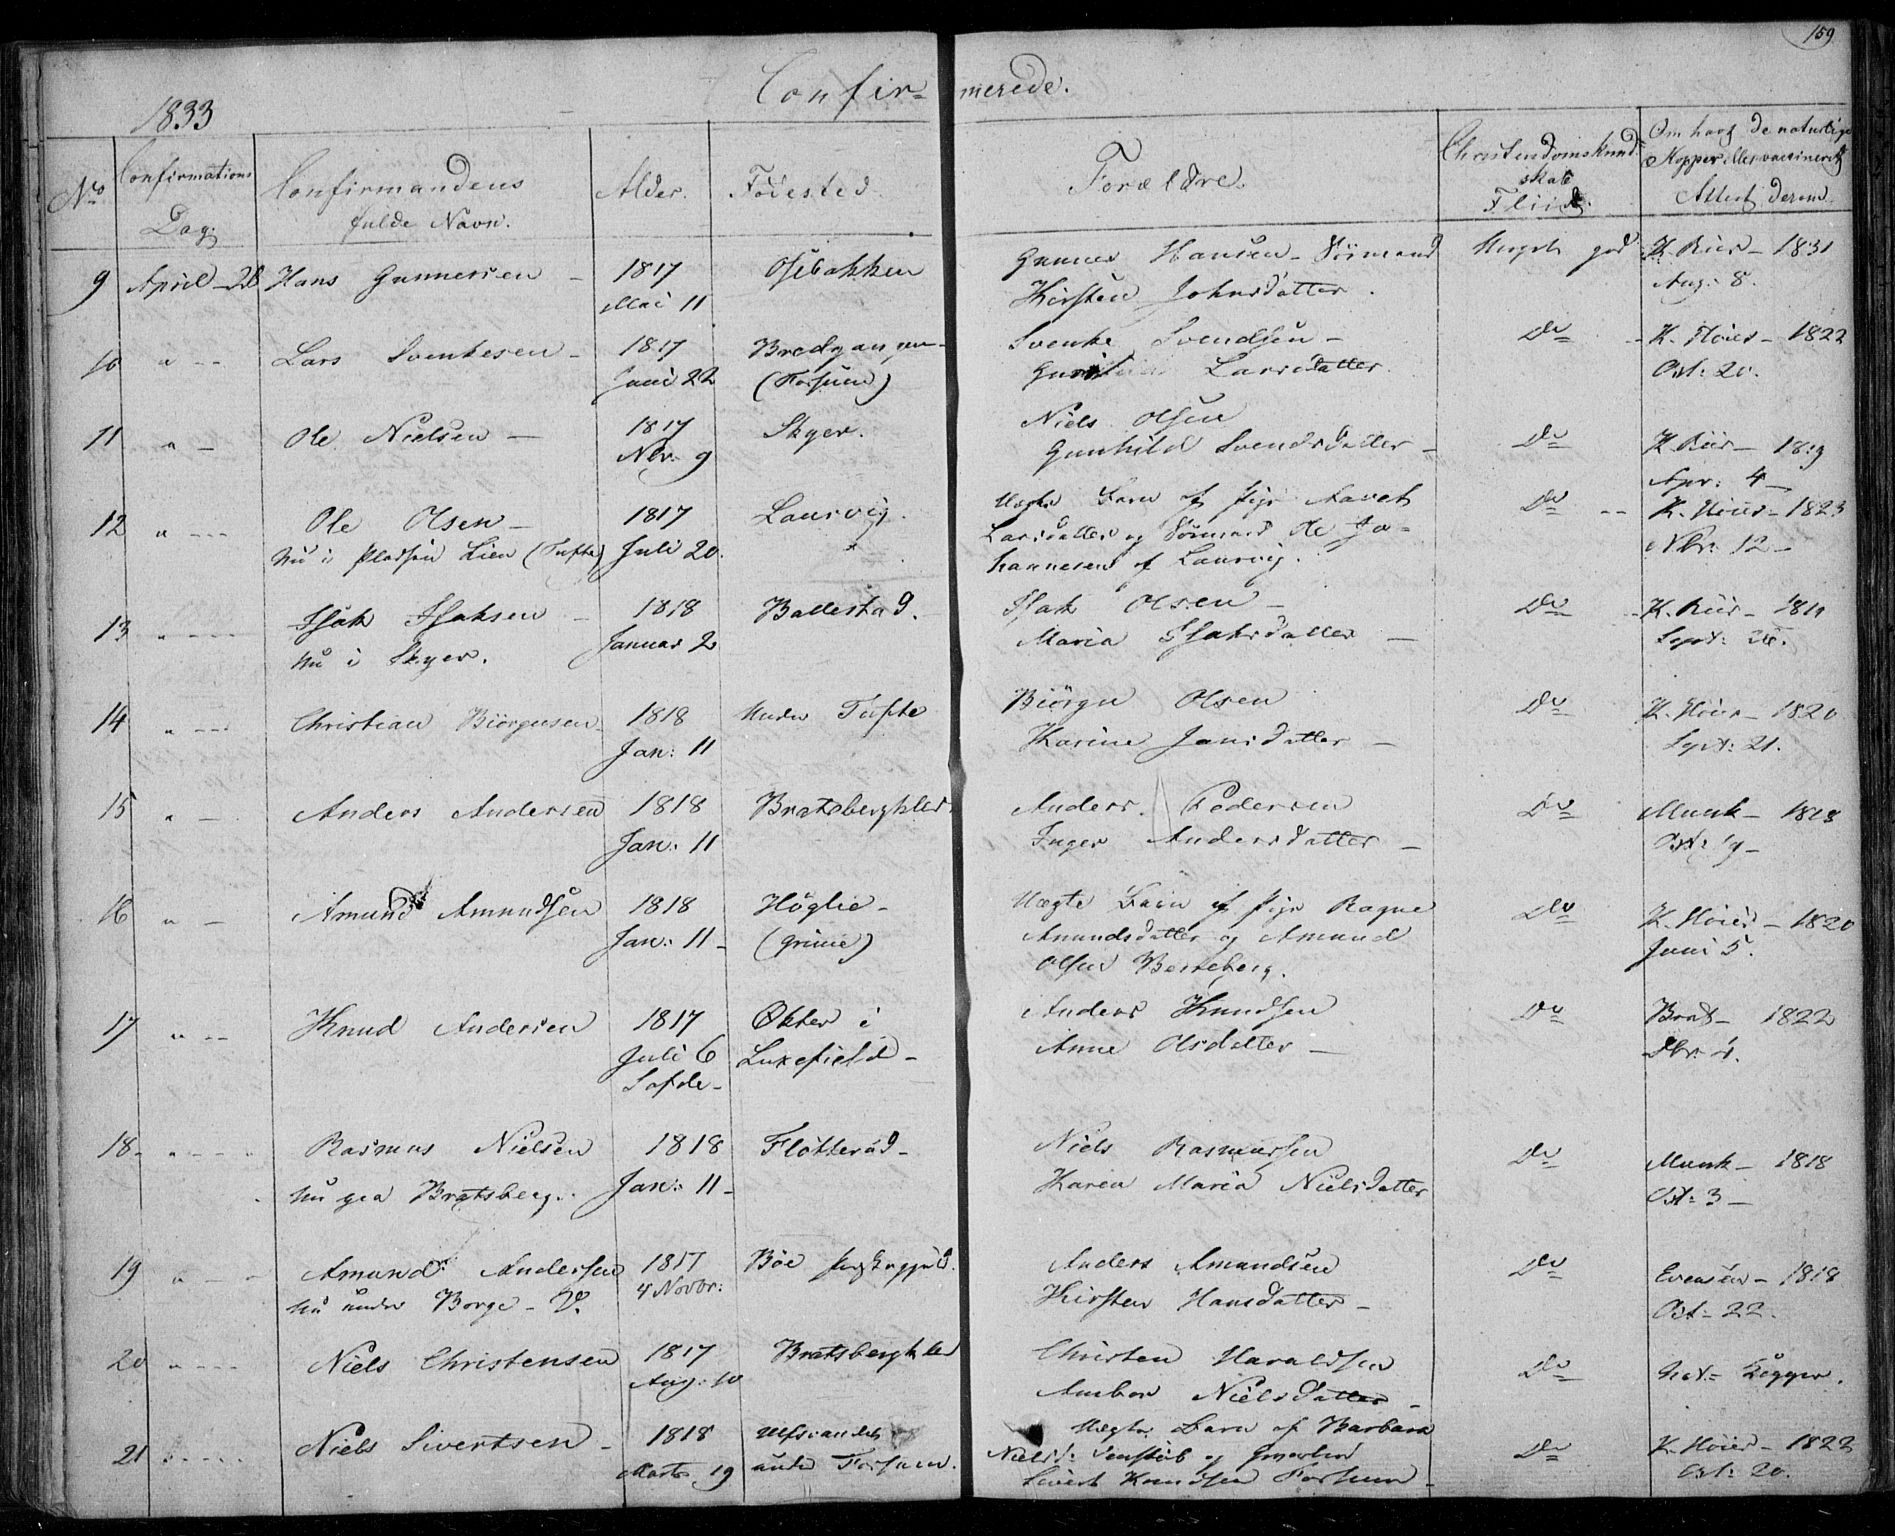 159
1833 Confir= merede.
No Confirmations Dag. Confirmandens fulde Navn. Alder. Fødested. Forældre. Christendomskundskab Fliid. Om havt de naturlige Kopper eller vaccineret Attest derom
9 April 28 Hans Gunnersen – 1817 Osebakken Gunner Hansen – Sömand Meget god K. Riis – 1831
Mai 11 Kirsten Johnsdatter. Aug: 8.
10 " – – Lars Svenkesen – 1817 Svenke Svendsen – Do K. Höier – 1822
Juni 22 (Forsum) Larsdatter. Oct: 20.
11 " – Ole Nielsen – 1817 Skyer. Niels Olsen Do K. Riis – 1819
Nov. 9 Gunhild Svendsdatter – Apr: 4 –
12 " – – – Ole Olsen – 1817 Laurvig. Uægte Barn af Pige Do K. Höier – 1823
nu i Pladsen Lien (Tufte) Juli 20. Larsdatter og Sömand Ole Jo= Nbr: 12 –
hannesen af Laurvig.
13 " – – – – Isak Isaksen – 1818 Ballestad. Isak Olsen – Do K. Riis – 1819
nu i Skyer. Januar 2 Maria Isaksdatter – Sept: 26.
14 " – – – Christian Biörgensen 1818 Under Tufte Biörgen Olsen Do K. Höier – 1820
Jan: 11 Karine Jansdatter – Sept: 21.
15 " – Anders Andersen 1818 Bratsbergklev. Anders Pedersen Do Munk – 1818
Jan: 11 Inger Andersdatter – Oct: 19 –
16 " – Amund Amundsen 1818 Höglie – Uægte Barn af Pige Ragne Do K. Höier – 1820
Jan: 11 – (Grinie) Amundsdatter og Amund Juni 5.
Olsen Berreberg.
17 " – – Knud Andersen 1817 Økter i Anders Knudsen Do Brat – 1822
Juli 6 Luxefield – Anne Olsdatter –
18 – " – – – – Rasmus Nielsen 1818 Flötteröd – Niels Rasmussen Do Munk – 1818
nu paa Bratsberg. Jan: 11 – Karen Maria Nielsdatter Oct: 3 –
19 " – – Amund Andersen 1817 Böe Anders Amundsen Do Evensen – 1818
nu under Borge – V. 4 Novbr: Kirsten Hansdatter – Oct: 22.
20 " – – – Niels Christensen 1817 Bratsbergklev Christen Haraldsen Do Nat: Kopper.
Aug: 10 Ambor Nielsdatter –
21 " – – – – Niels Sivertsen – 1818 Uægte Barn af Barbara Do K. Höier – 1822
Marts 19 under Forsum. Nielsd: og Oct: 20.
Sivert Knudsen Forsum –